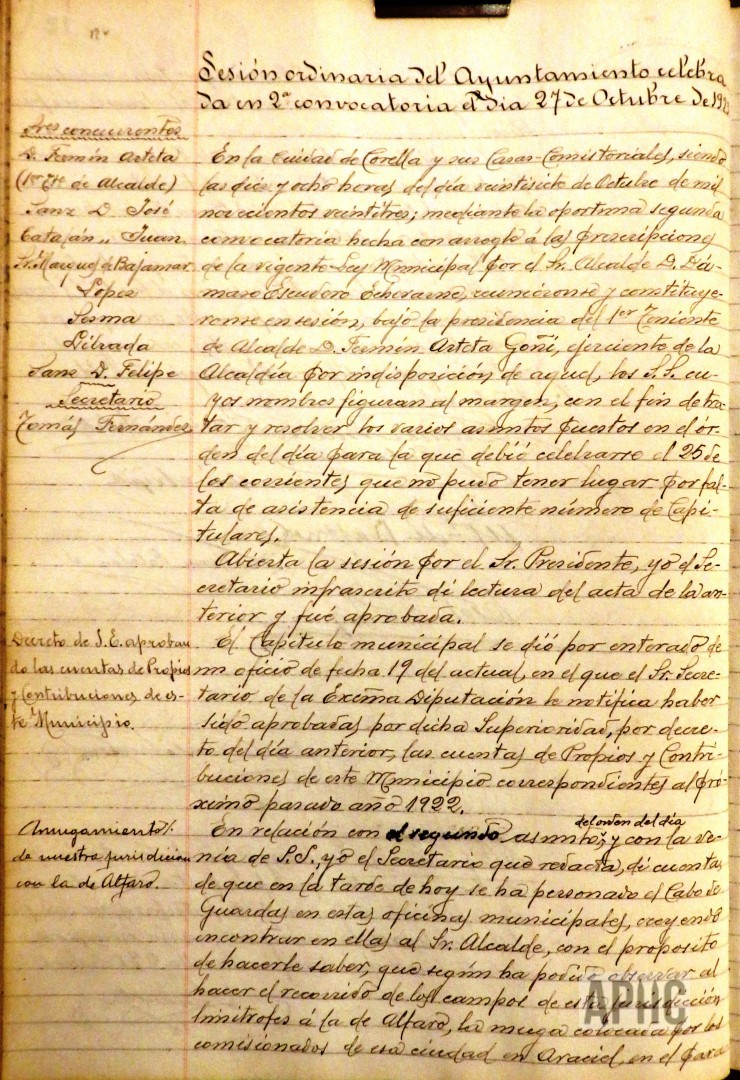 Sesión ordinaria del Ayuntamiento celebra
da en 2ª convocatoria el día 27 de Octubre de 1923
Sres concurrentes
D. Fermín Arteta
(1er Tte de Alcalde)
Sanz D. José
Catalán „ Juan
Sr. Marqués de Bajamar
Lopez
Sesma
Librada
Sanz D. Felipe
Secretario
Tomás Fernández
En la Ciudad de Corella y sus Casas-Comistoriales, siendo
las diez y ocho horas del día veintisiete de Octubre de mil
novecientos veintitres; mediante la oportuna segunda
convocatoria hecha con arreglo á las prescripciones
de la vigente Ley Municipal por el Sr. Alcalde D. Dá-
maso Escudero Echevarne, reuniéronse y constituye-
ronse en sesión, bajo la presidencia del 1er Teniente
de Alcalde D. Fermín Arteta Goñi, ejerciente de la
Alcaldía por indisposición de aquel, los S.S. cu-
yos nombres figuran al margen, con el fin de tra-
tar y resolver los varios asuntos puestos en el or-
den del día para la que debió celebrarse el 25 de
los corrientes que no pudo tener lugar por fal-
ta de asistencia de suficiente número de Capi-
tulares.
Abierta la sesión por el Sr. Presidente, yo el Se-
cretario infrascrito di lectura del acta de la an-
terior y fué aprobada.
Decreto de S.E. aproban
do las cuentas de Propios
y Contribuciones de es-
te Municipio.
El Capitulo municipal se dió por enterado de
un oficio de fecha 19 del actual, en el que el Sr. Secre-
tario de la Excma Diputación le notifica haber
sido aprobadas por dicha Superioridad, por decre-
to del día anterior, las cuentas de Propios y Contri-
buciones de este Municipio correspondientes al pró-
ximo pasado año 1922.
Amugamiento
de nuestra jurisdicion
con la de Alfaro.
del orden del día
En relación con el segundo asunto, y con la ve-
nia de S.S., yo el Secretario que redacta, di cuenta
de que en la tarde de hoy se ha personado el Cabo de
Guardas en estas oficinas municipales, creyendo
encontrar en ellas al Sr. Alcalde, con el proposito
de hacerle saber, que según ha podido observar al
hacer el recorrido de los campos de esta jurisdicción
limitrofes á la de Alfaro, la muga colocada por los
comisionados de esa ciudad en Araciel, en el para
APHC